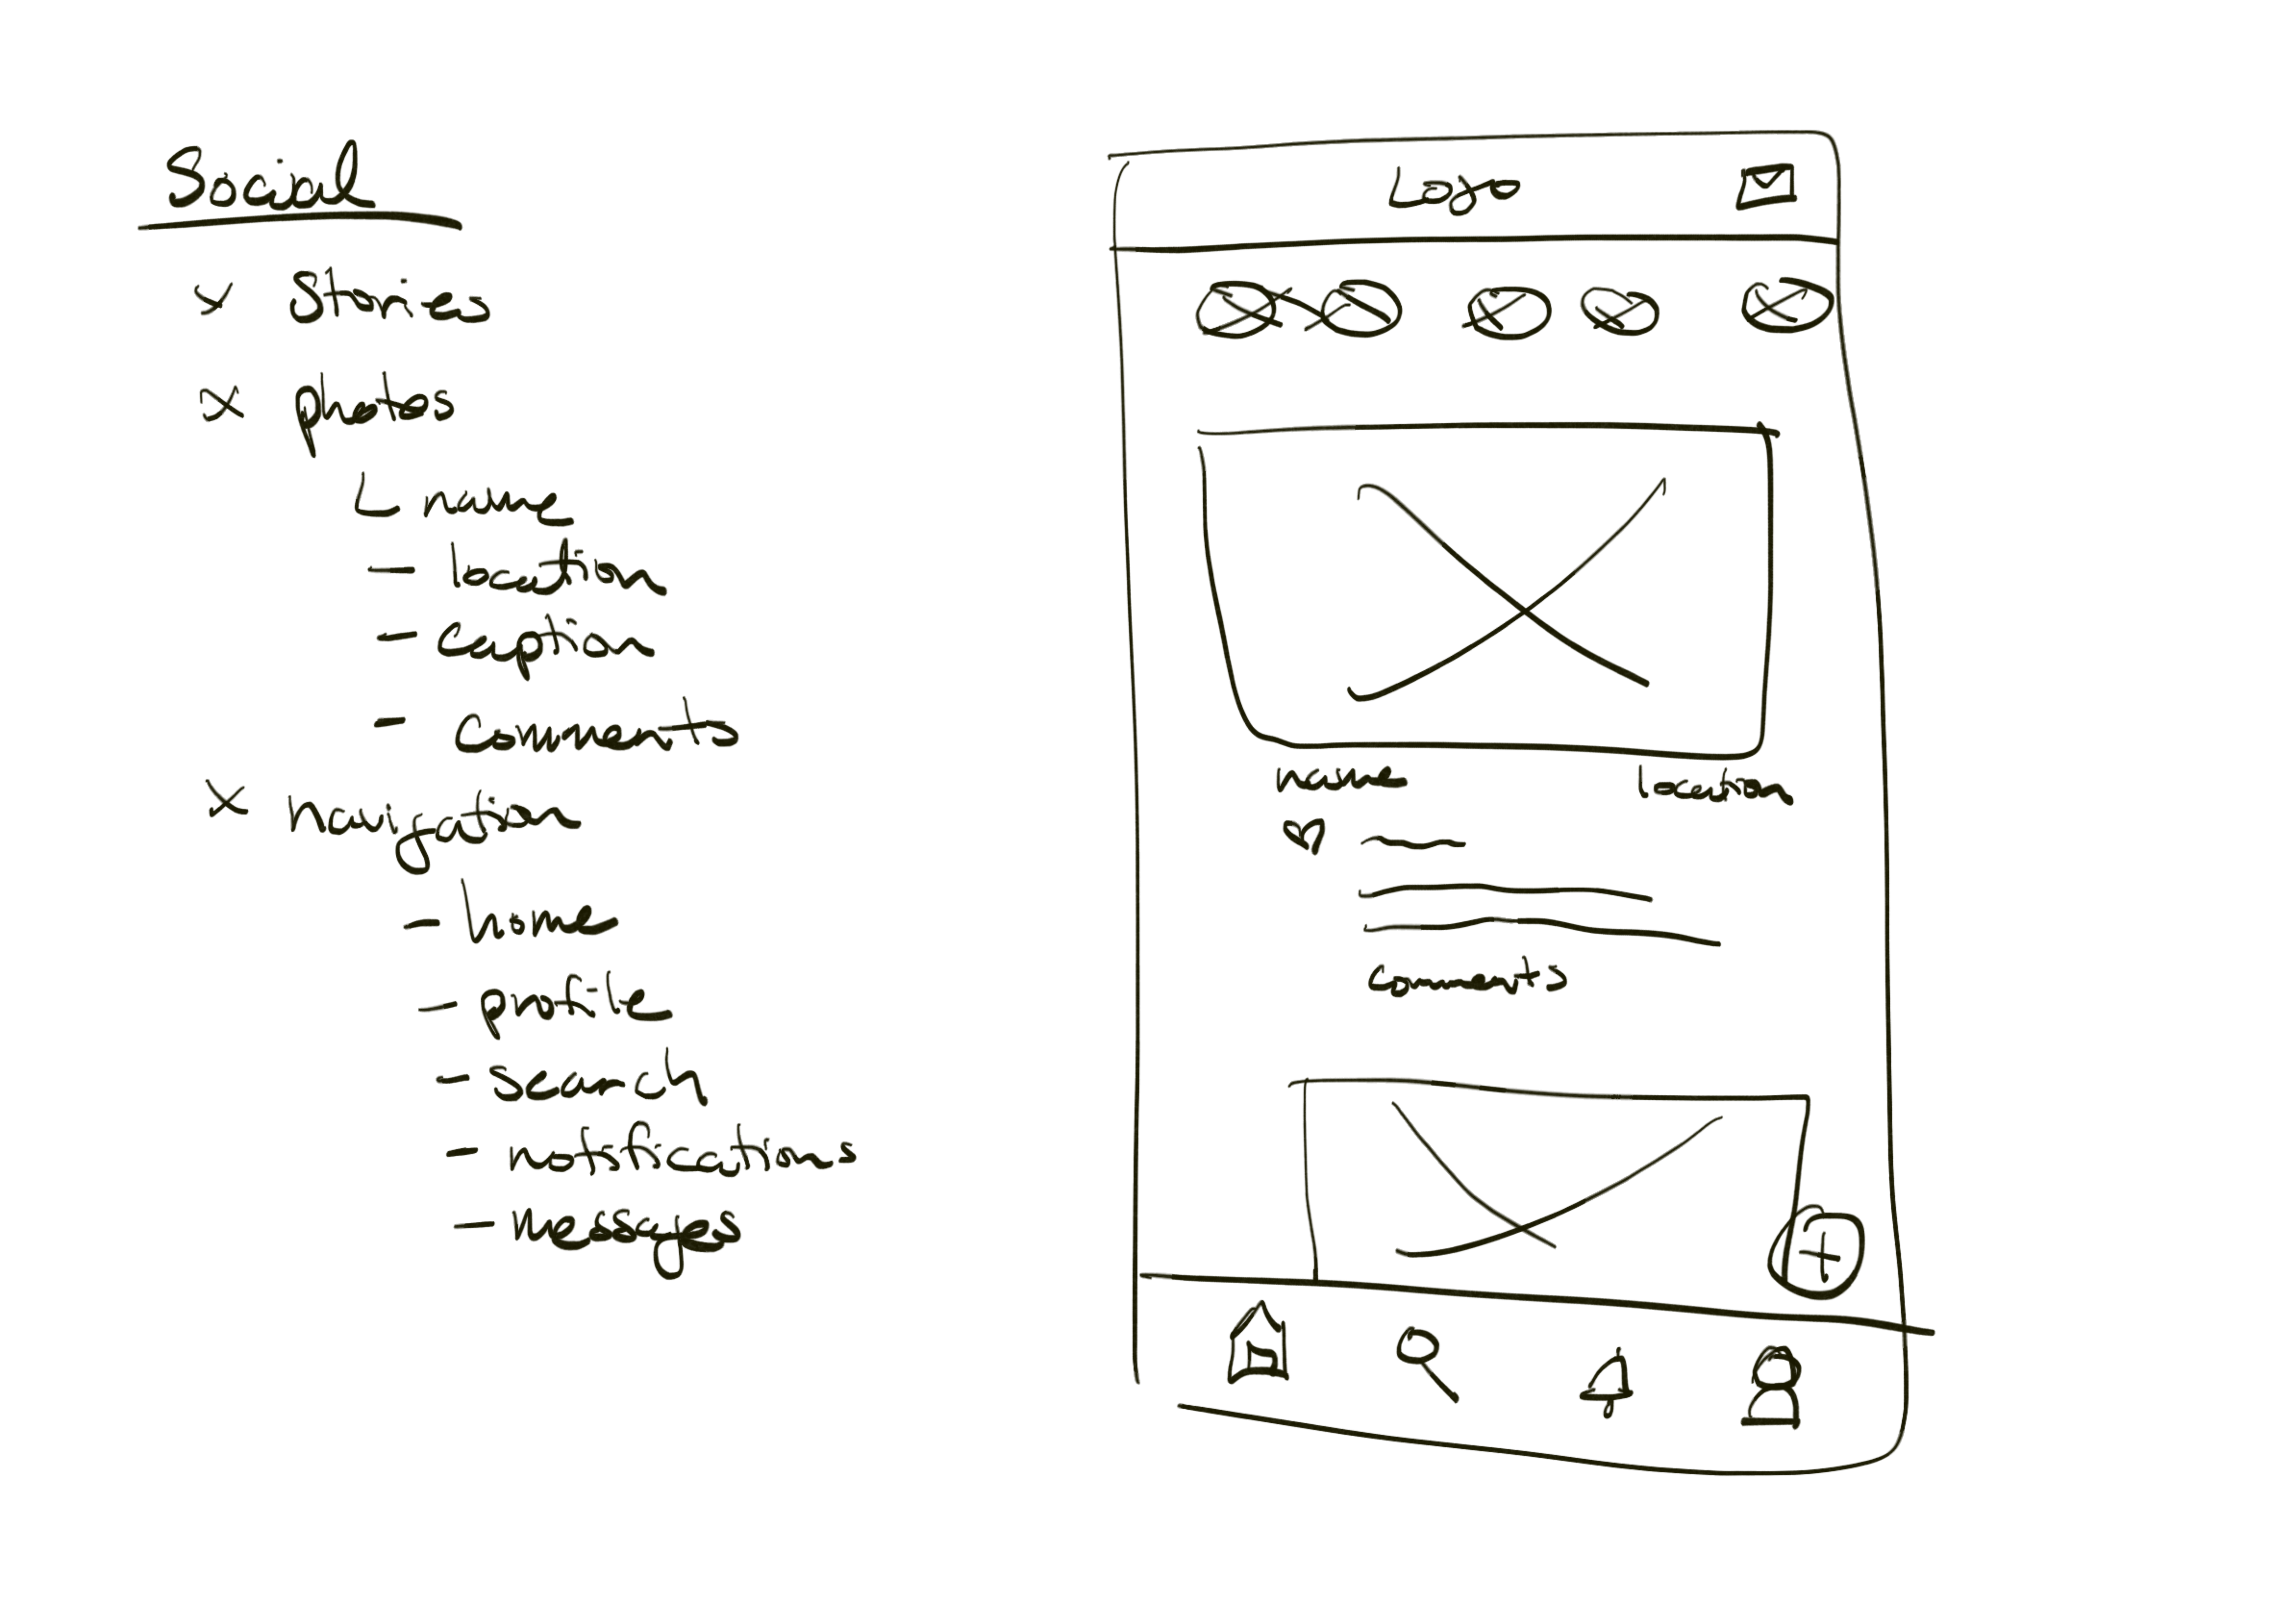 Social
x Stories
x photos
name
- location
- caption
- comments
x navigation
- home
- profile
- search
- notifications
- messages
Logo
name location
comments